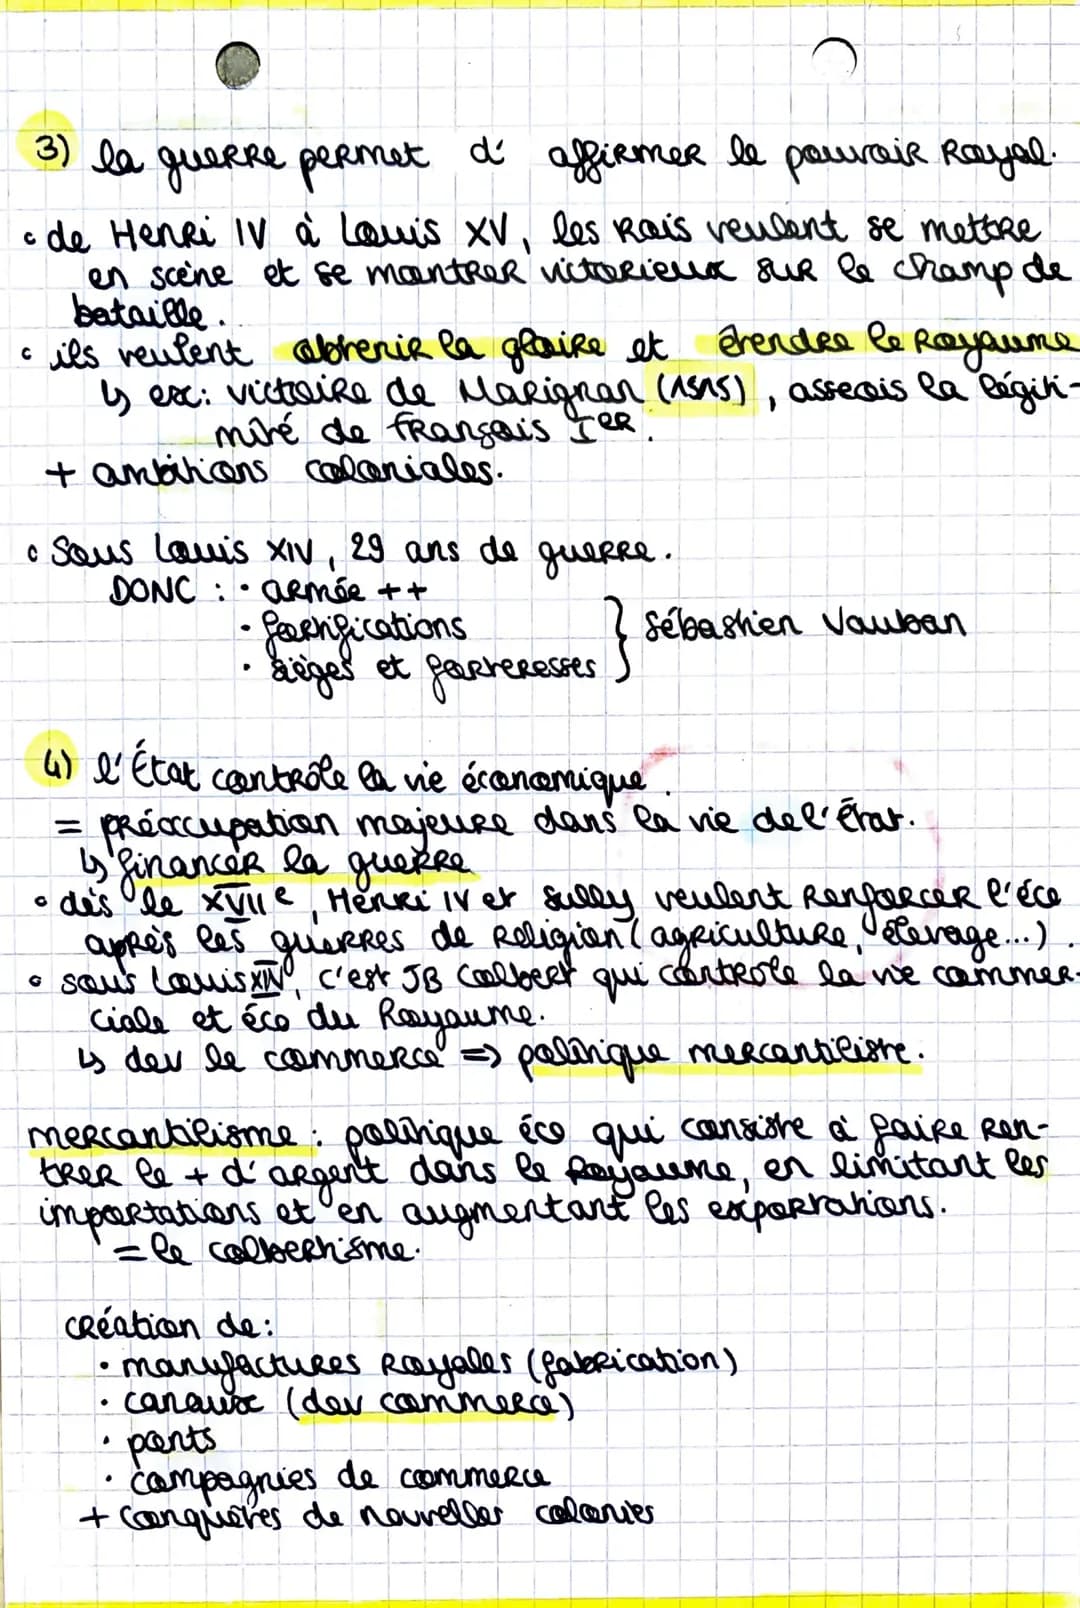 3) la guerre permet d' affirmer le pouvoir Royal.
• de Henri IV à Louis XV, les Rois veulent se mettre
en scène et se montrer victorieux sur le champ de
bataille.
• ils veulent obtenir la gloire et étendre le Royaume
↳ ex: victoire de Marignan (1515), asseois la légiti-
mité de François Ier.
+ ambitions coloniales.
• Sous Louis XIV, 29 ans de guerre.
DONC : • armée ++
• fortifications } Sébastien Vauban
• sièges et forteresses
4) l'État contrôle la vie économique.
= préoccupation majeure dans la vie de l'État.
↳ financer la guerre
• dès le XVIIe, Henri IV et Sully veulent Renforcer l'éco
après les guerres de Religion (agriculture, élevage...).
• sous Louis XIV, c'est JB Colbert qui contrôle la vie commer-
ciale et éco du Royaume.
↳ dev le commerce => politique mercantiliste.
mercantilisme : politique éco qui consiste à faire ren-
trer le + d'argent dans le Royaume, en limitant les
importations et en augmentant les exportations.
= le colbertisme.
création de:
• manufactures Royales (fabrication)
• canaux (dev commerce)
• ponts
• compagnies de commerce
+ conquêtes de nouvelles colonies